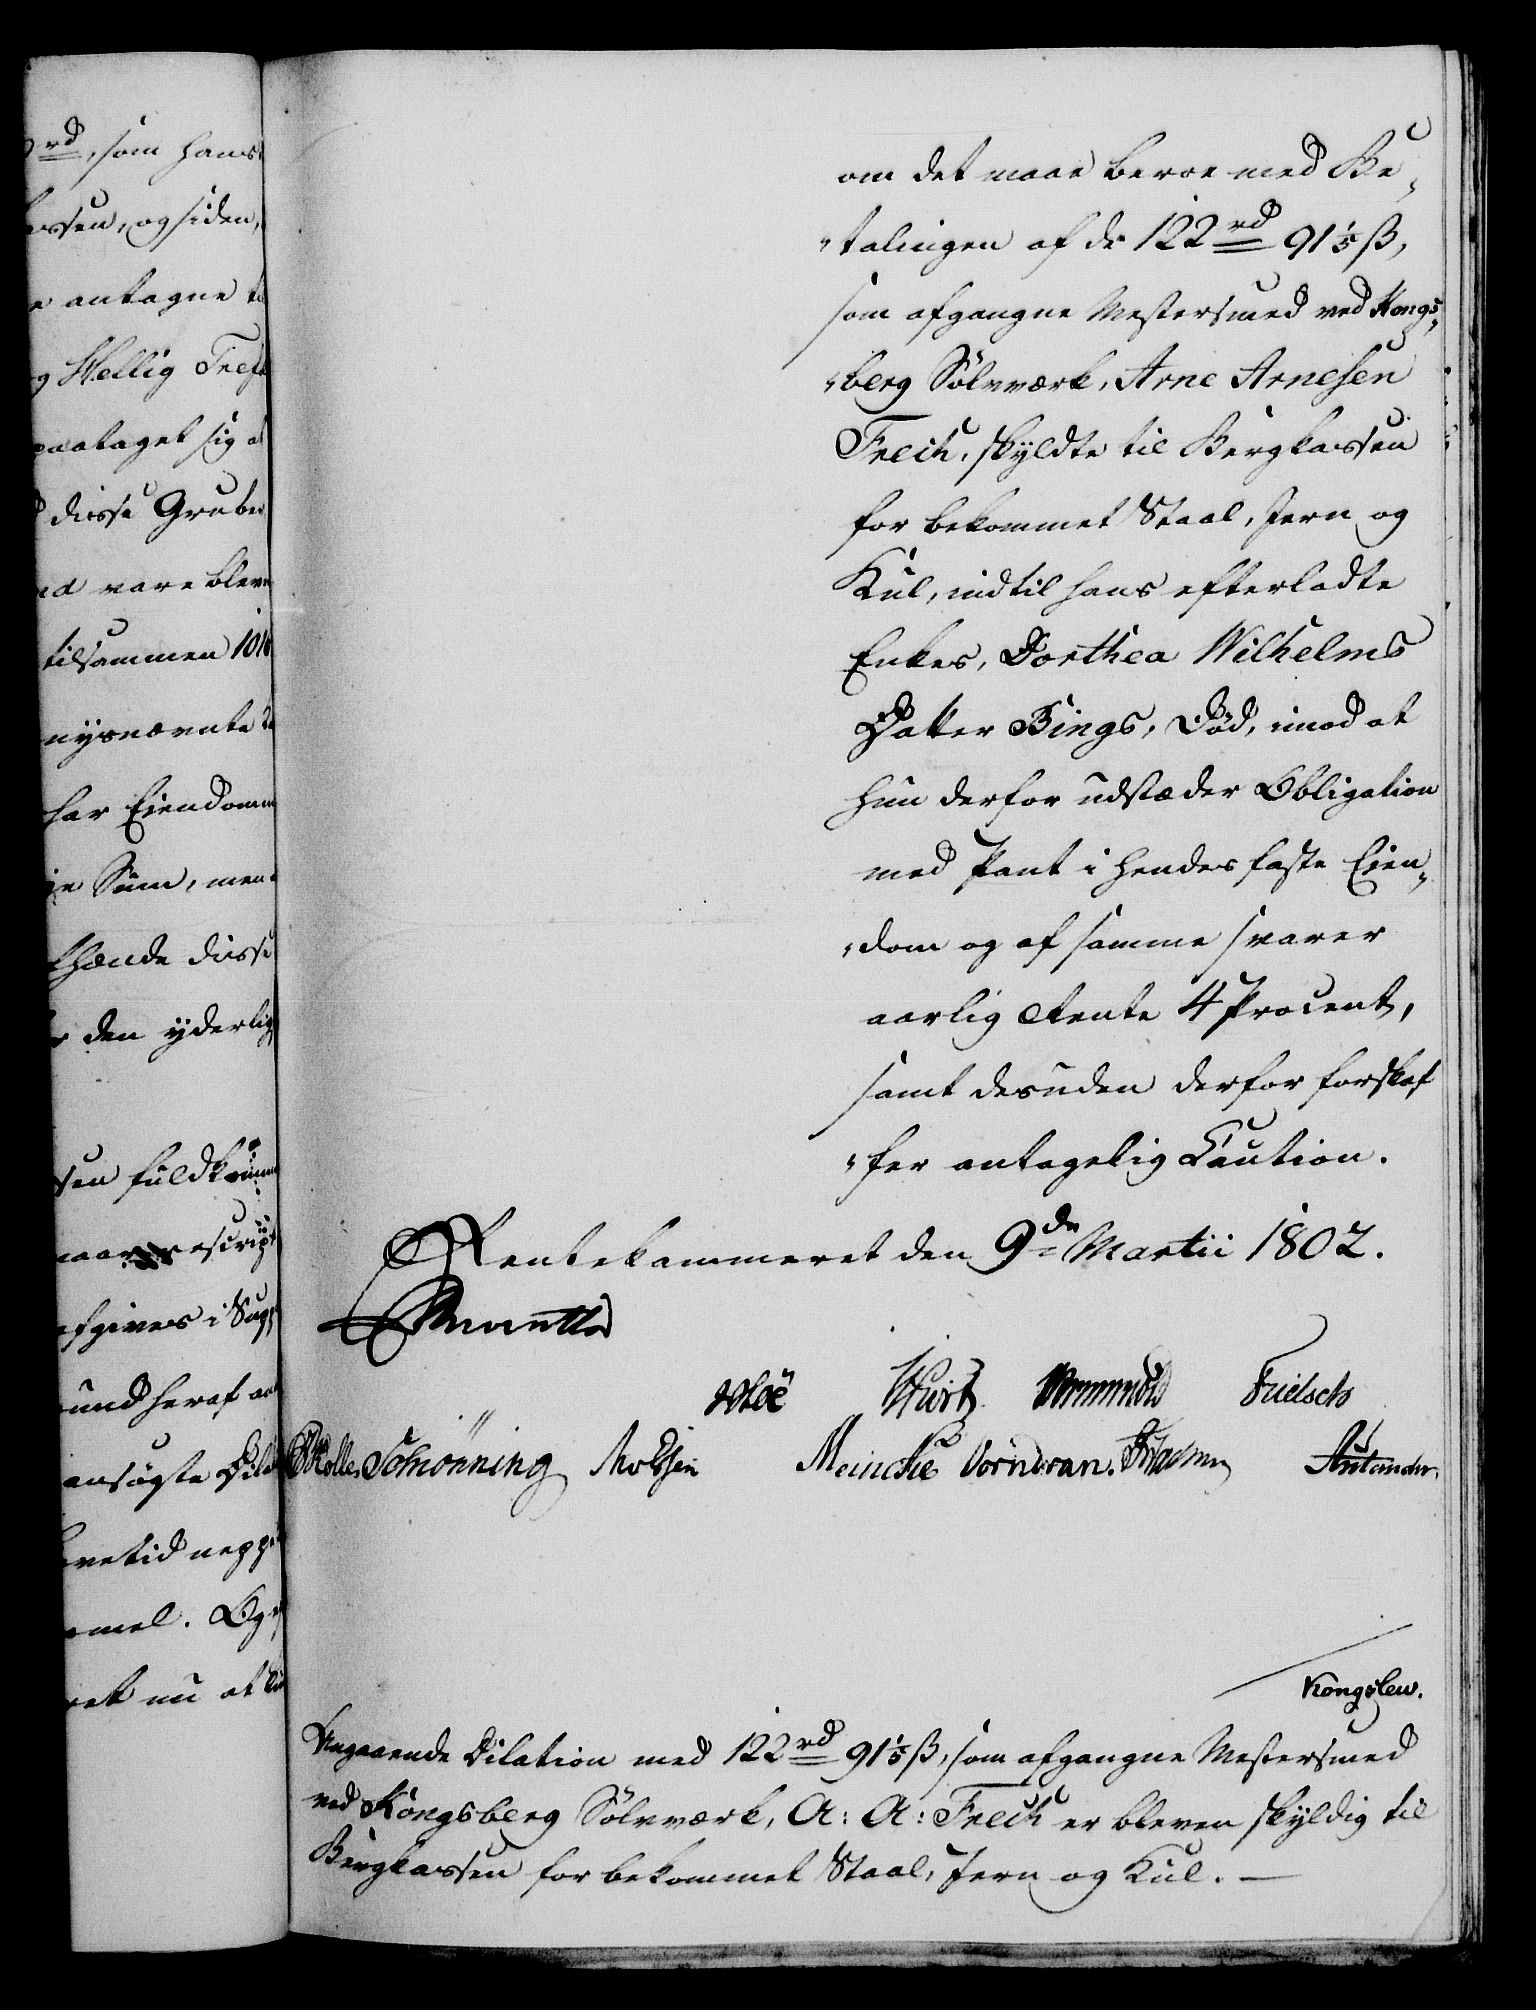 rd, som hans
og siden,
antagne
og Hellig Tref
paataget sig
disse Grube
vare bleven
tilsammen
nysnævnte
har Eiendomm
Sum, men
disse
den yderlig
fuldkomm
rescript
afgives i
heraf
ansøgte
mel. Og
nu at
om det maae beroe med Be-
talingen af de 122 rd 91 1/5 ß,
som afgangne Mestersmed ved Kongs-
berg Sölvværk, Arne Arnesen
Frech, skyldte til Bergkassen
for bekommet Staal, Jern og
Kul, indtil hans efterladte
Enkes, Dorthea Wilhelms
Datter Bings, Död, imod at
hun derfor udstæder Obligation
med Pant i hendes faste Eien-
dom og af samme svarer
aarlig Rente 4 Procent,
samt desuden derfor forskaf
fer antagelig Caution.
Rentekammeret den 9de Martii 1802.
Wurtz
Schiönning Meincke Vorndran.
Kongslew.
Angaaende Dilation med 122 rd 91 1/5 ß, som afgangne Mestersmed
ved Kongsberg Sölvværk, A: A: Frech er bleven skyldig til
Bergkassen for bekommet Staal, Jern og Kul. —